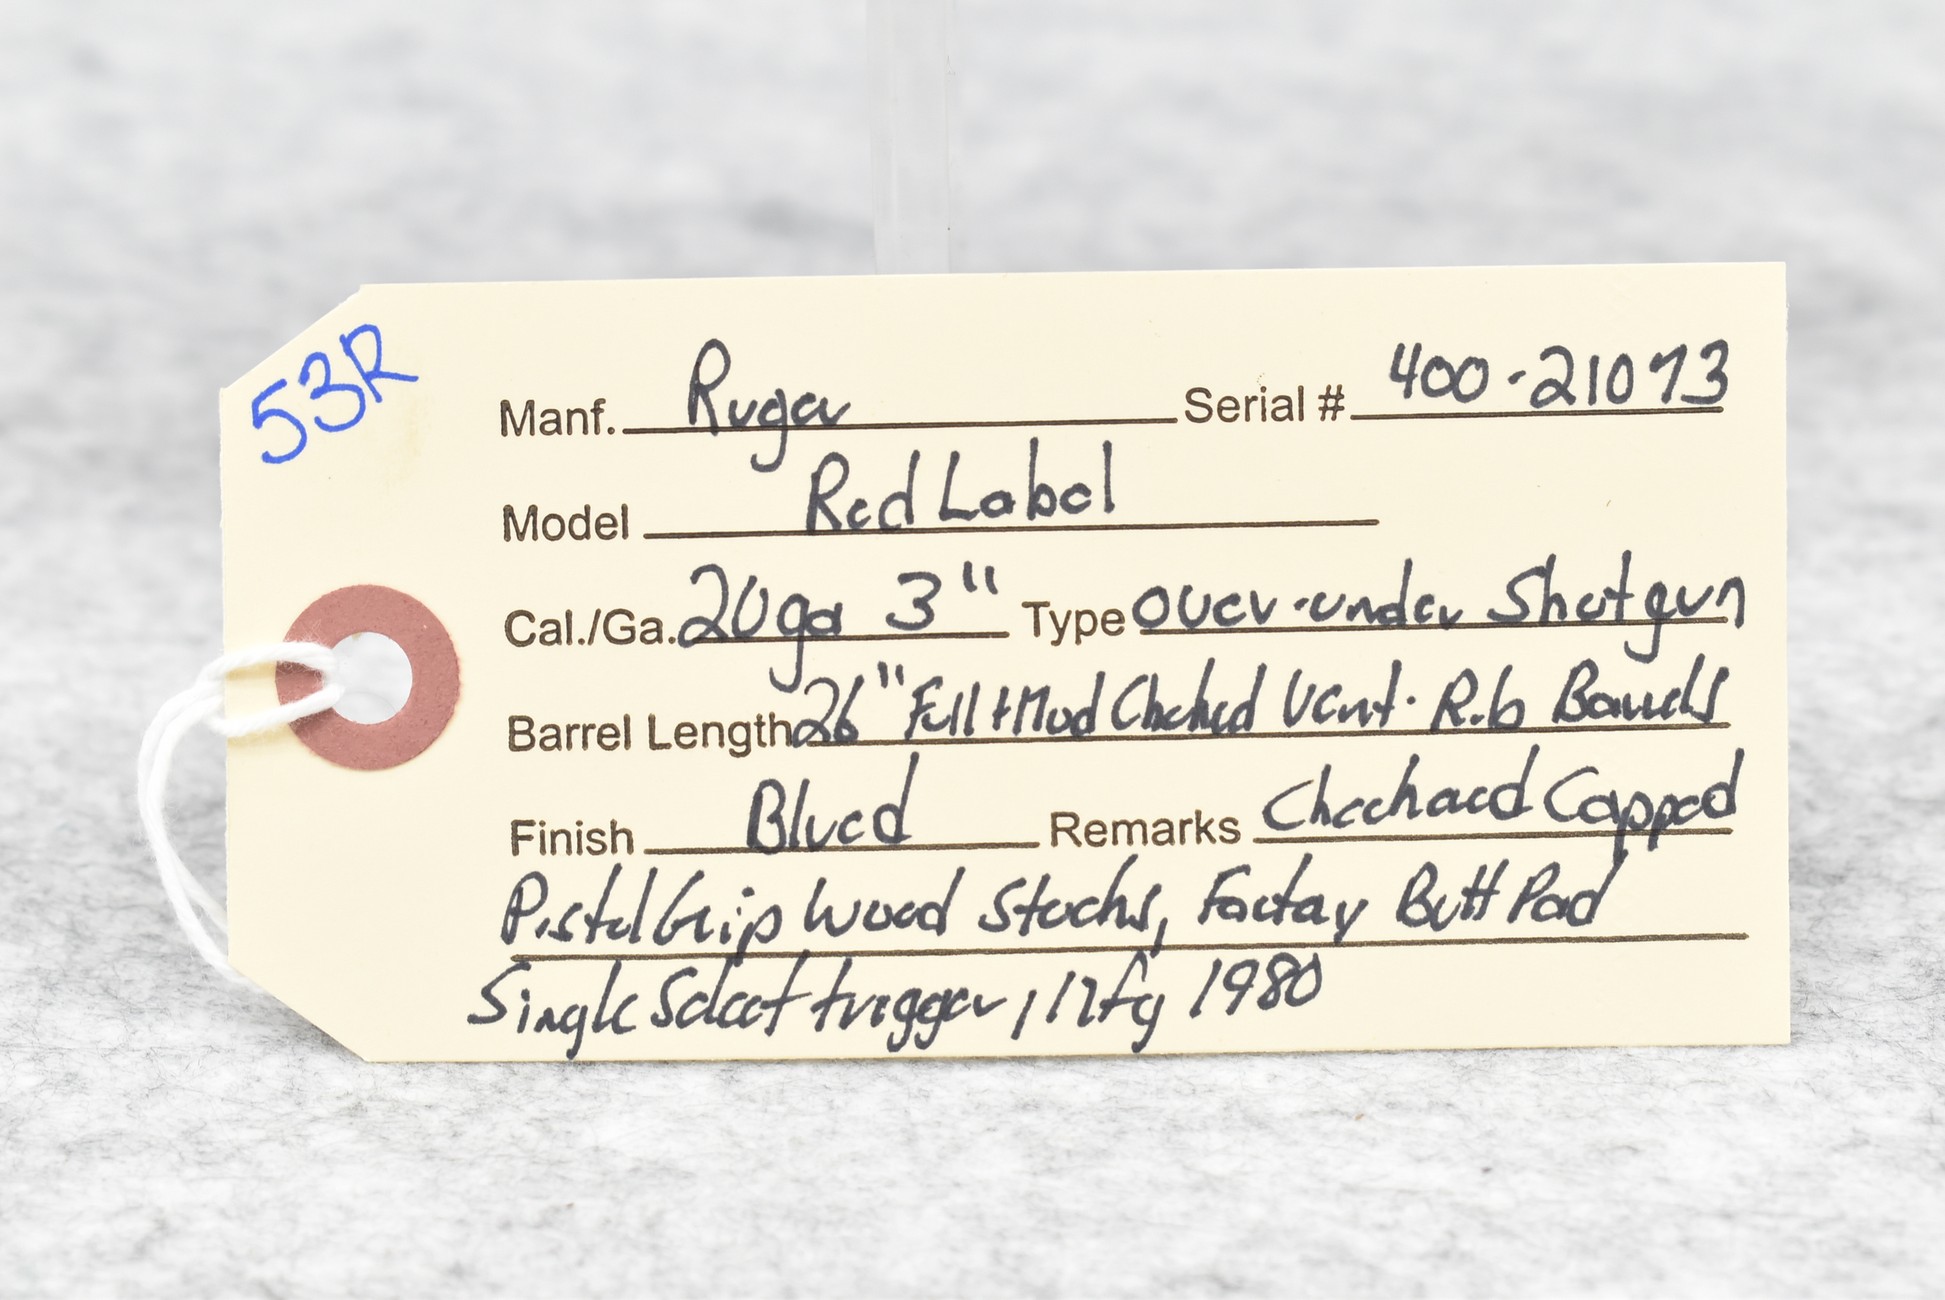 53R
Manf. Ruger Serial # 400-21073
Model Red Label
Cal./Ga. 20ga 3" Type Over-under Shotgun
Barrel Length 26" Full + Mod Choked Vent-Rib Barrels
Finish Blued Remarks Checkered Capped
Pistol Grip Wood Stocks, Factory Butt Pad
Single Select trigger, Mfg 1980